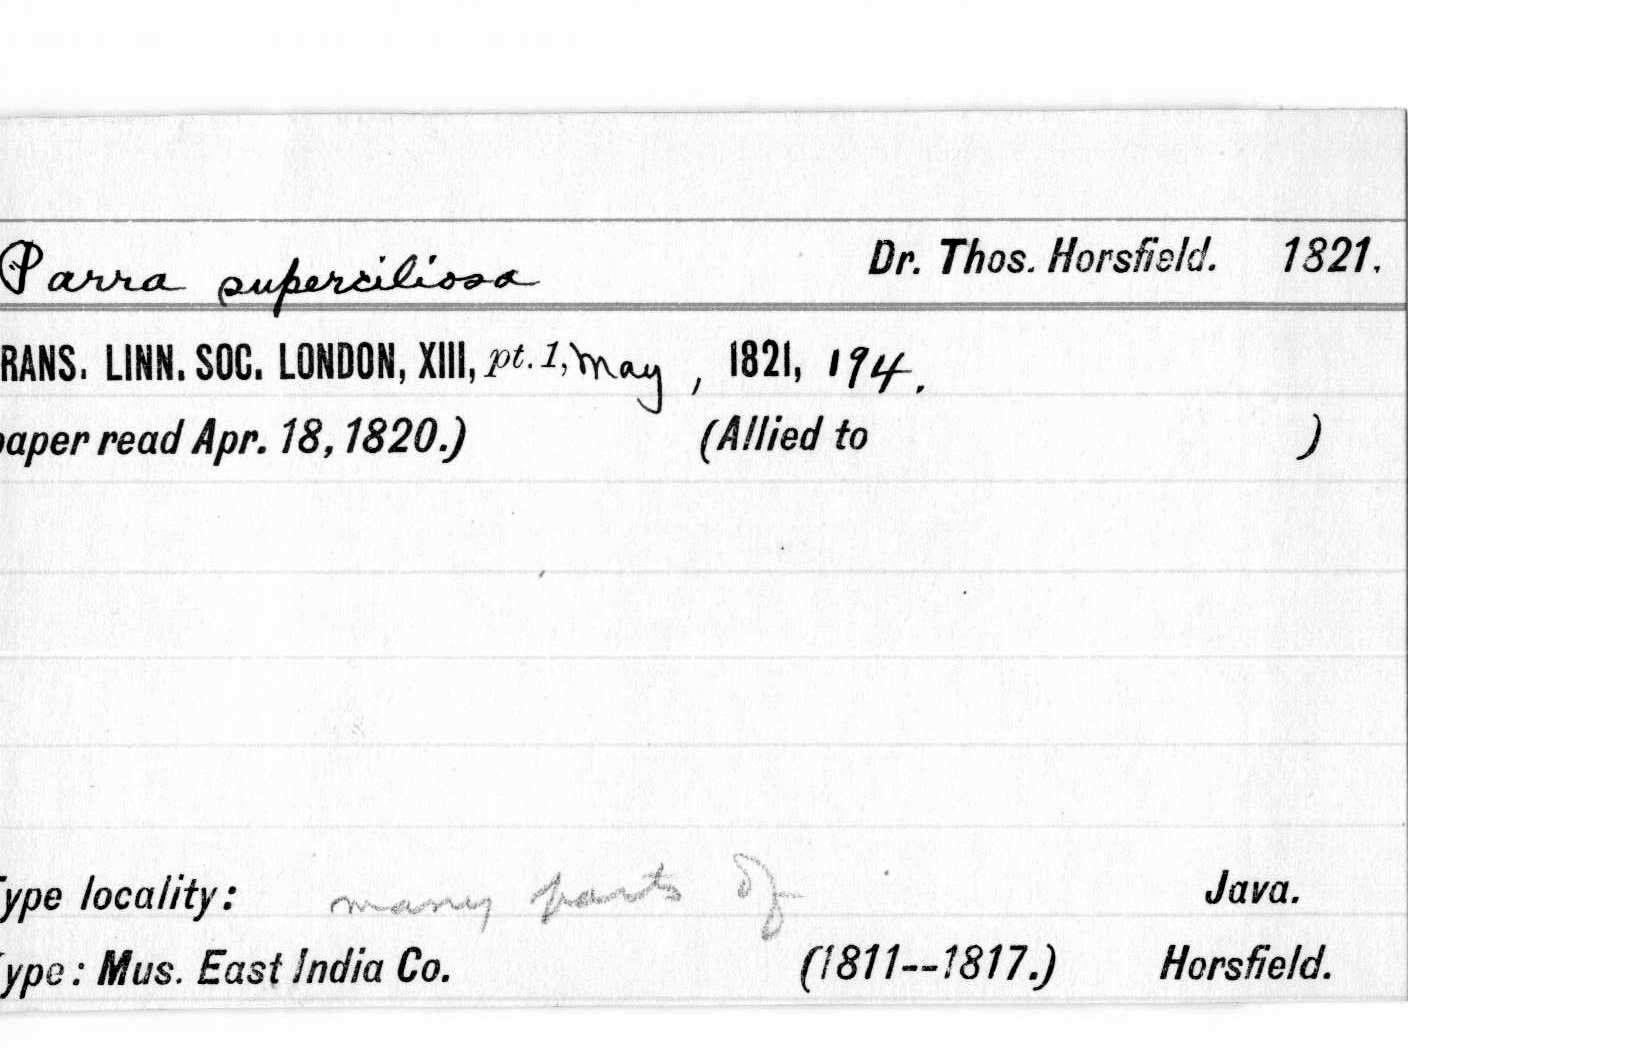 Parra superciliosa Dr. Thos. Horsfield. 1821.
RANS. LINN. SOC. LONDON, XIII, pt. 1, May , 1821, 194.
paper read Apr. 18, 1820.) (Allied to )
Type locality: many parts of Java.
ype: Mus. East India Co. (1811--1817.) Horsfield.